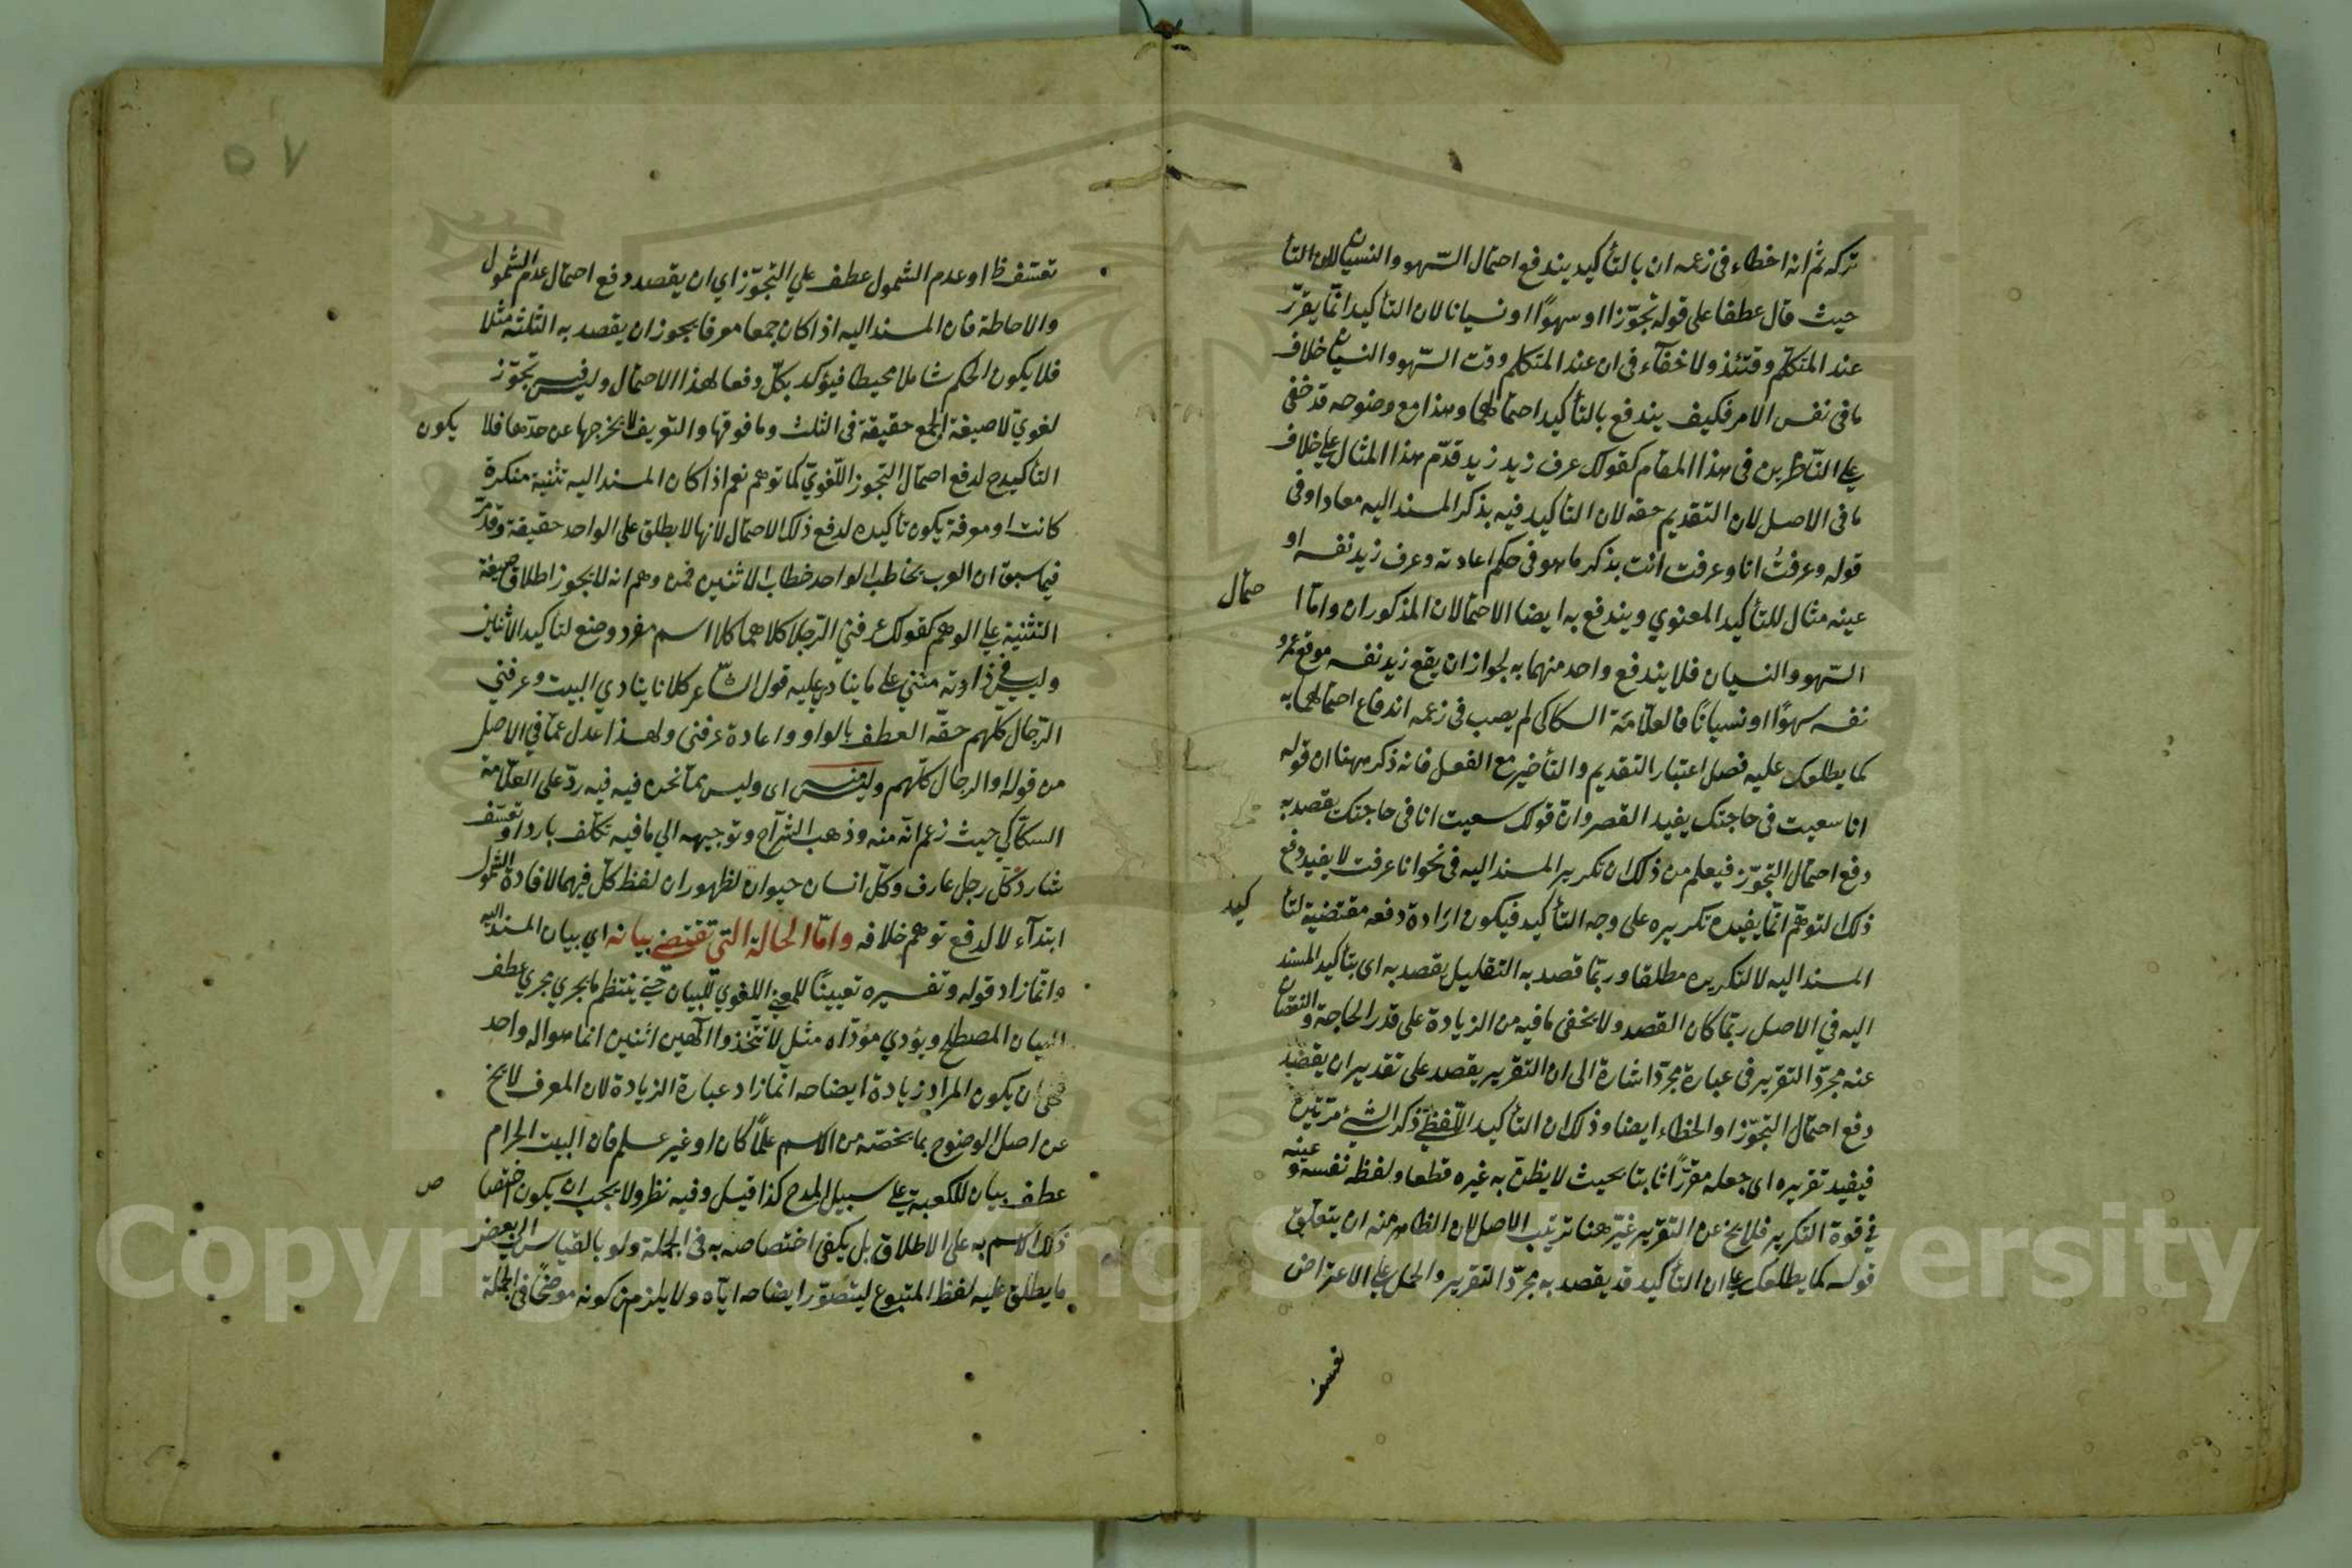 تركه ثم انه اخطاء فى زعمه ان بالتأكيد يندفع احتمال السّهو والنسيان لان التأ
حيث قال عطفا على قوله تجوّزا او سهوًا او نسيانا لان التأكيد انمّا يقرّر
عند المتكلّم وقتئذ ولا خفآء فى ان عند المتكلم وقت السّهو والنسيان خلاف
ما فى نفس الامر فكيف يندفع بالتأكيد احتمالهما وهذا مع وضوحه قد خفى
على النّاظرين فى هذا المقام كقولك عرف زيد زيد قدّم هذا المثال على خلاف
ما فى الاصل لان التقديم حقه لان التأكيد فيه بذكر المسند اليه معادا وفى
قوله وعرفتُ انا وعرفت انت بذكر ما هو فى حكم اعادته وعرف زيد نفسه او
عينه مثال للتأكيد المعنوي ويندفع به ايضا الاحتمالان المذكوران وامّا ا حتمال
السّهو والنسيان فلا يندفع واحد منهما به لجواز ان يقع زيد نفسه موقع عمرو
نفسه سهوًا او نسيانًا فالعلّامَة السكاكى لم يصب فى زعمه اندفاع احتمالهما به
كما يطلعك عليه فصل اعتبار التقديم والتأخير مع الفعل فانه ذكر ههنا ان قوله
انا سعيت فى حاجتك يفيد القصر وانّ قولك سعيت انا فى حاجتك يقصد به
دفع احتمال التجوّز فيعلم من ذلك ان تكرير المسند اليه فى نحو انا عرفت لا يفيد دفع
ذلك التوهّم انمّا يفيده تكريره على وجه التأكيد فيكون ارادة دفعه مقتضية لتأ كيد
المسند اليه لا لتكريره مطلقا وربّما قصد به التقليل يقصد به اى بتأكيد المسند
اليه في الاصل ربّما كان القصد ولا يخفى ما فيه من الزيادة على قدر الحاجة والنقصان
عنه مجرّد التقرير فى عبارة مجرّد اشارة الى ان التقرير يقصد على تقدير ان يقصد
دفع احتمال التجوّز او الخطاء ايضا وذلك ان التأكيد اللّفظيّ ذكر الشئ مرّتين
فيفيد تقريره اى جعله مقرّرًا ثابتا بحيث لا يظنّ به غيره قطعا ولفظ نفسه وعينه
في قوة التكرير فلا يخ عن التقرير غيّر هنا ترتيب الاصل لان الظاهر منه ان يتعلّق
قوله كما يطلعك على ان التأكيد قد يقصد به مجرّد التقرير والحمل على الاعتراض
تعسّف
٥٧
تعسّف ظ او عدم الشمول عطف على التجوّز اي ان يقصد دفع احتمال عدم الشمول
والاحاطة فان المسند اليه اذا كان جمعا معرفا يجوز ان يقصد به الثلثة مثلا
فلا يكون الحكم شاملا محيطا فيؤكد بكلّ دفعا لهذا الاحتمال وليس فيه تجوّز
لغويّ لا صيغة الجمع حقيقة فى الثلث وما فوقها والتعريف لا يخرجها عن حدّها فلا يكون
التأكيد ح لدفع احتمال التجوز اللّغويّ كما توهم نعم اذا كان المسند اليه تثنية منكرة
كانت او معرفة يكون تأكيده لدفع ذلك الاحتمال لانها لا يطلق على الواحد حقيقة وقد مرّ
فيما سبق ان العرب يخاطب الواحد خطاب الاثنين فمن وهم انه لا يجوز اطلاق صيغة
التثنية على الوهم كقولك عرفني الرّجلا كلاهما كلا اسم مفرد وضع لتأكيد الاثنين
وليس في ذاوته مثنى على ما ينادي عليه قول الشّاعر كلانا ينادي البيت وعرفني
الرّجال كلهم حقّه العطف بالواو واعادة عرفنى ولهذا عدل عمّا في الاصل
من قوله او الرجال كلّهم وليس منه اى وليس ممّا نحن فيه فيه ردّ على العلّامة
السكّاكي حيث زعم انّه منه وذهب الشرّاح وتوجيهه الي ما فيه تكلّف بارد او تعسّف
شارد كلّ رجل عارف وكلّ انسان حيوان لظهور ان لفظ كلّ فيهما لافادة الشمول
ابتدآء لا لدفع توهم خلافه وامّا الحالة التي تقتضي بيانه اي بيان المسند اليه
وانمّا زاد قوله وتفسيره تعيينًا للمعنى اللغوي للبيان حتى ينتظم ما يجري مجري عطف
البيان المصطلح ويؤدي مؤدّاه مثل لا تتّخذوا الٓهين اثنين انما هو اله واحد
فهى ان يكون المراد زيادة ايضاحه انما زاد عبارة الزيادة لان المعرف لا يخ
عن اصل الوضوح بما يخصّه من الاسم علمًا كان او غير علم فان البيت الحرام
عطف بيان للكعبة على سبيل المدح كذا قيل وفيه نظر ولا يجب ان يكون اختصا ص
ذلك الاسم به على الاطلاق بل يكفى اختصاصه به فى الجملة ولو بالقياس الى بعض
ما يطلق عليه لفظ المتبوع ليتصوّر ايضاحه ايّاه ولا يلزم من كونه موضحًا فى الجملة
Copyright © King Saud University